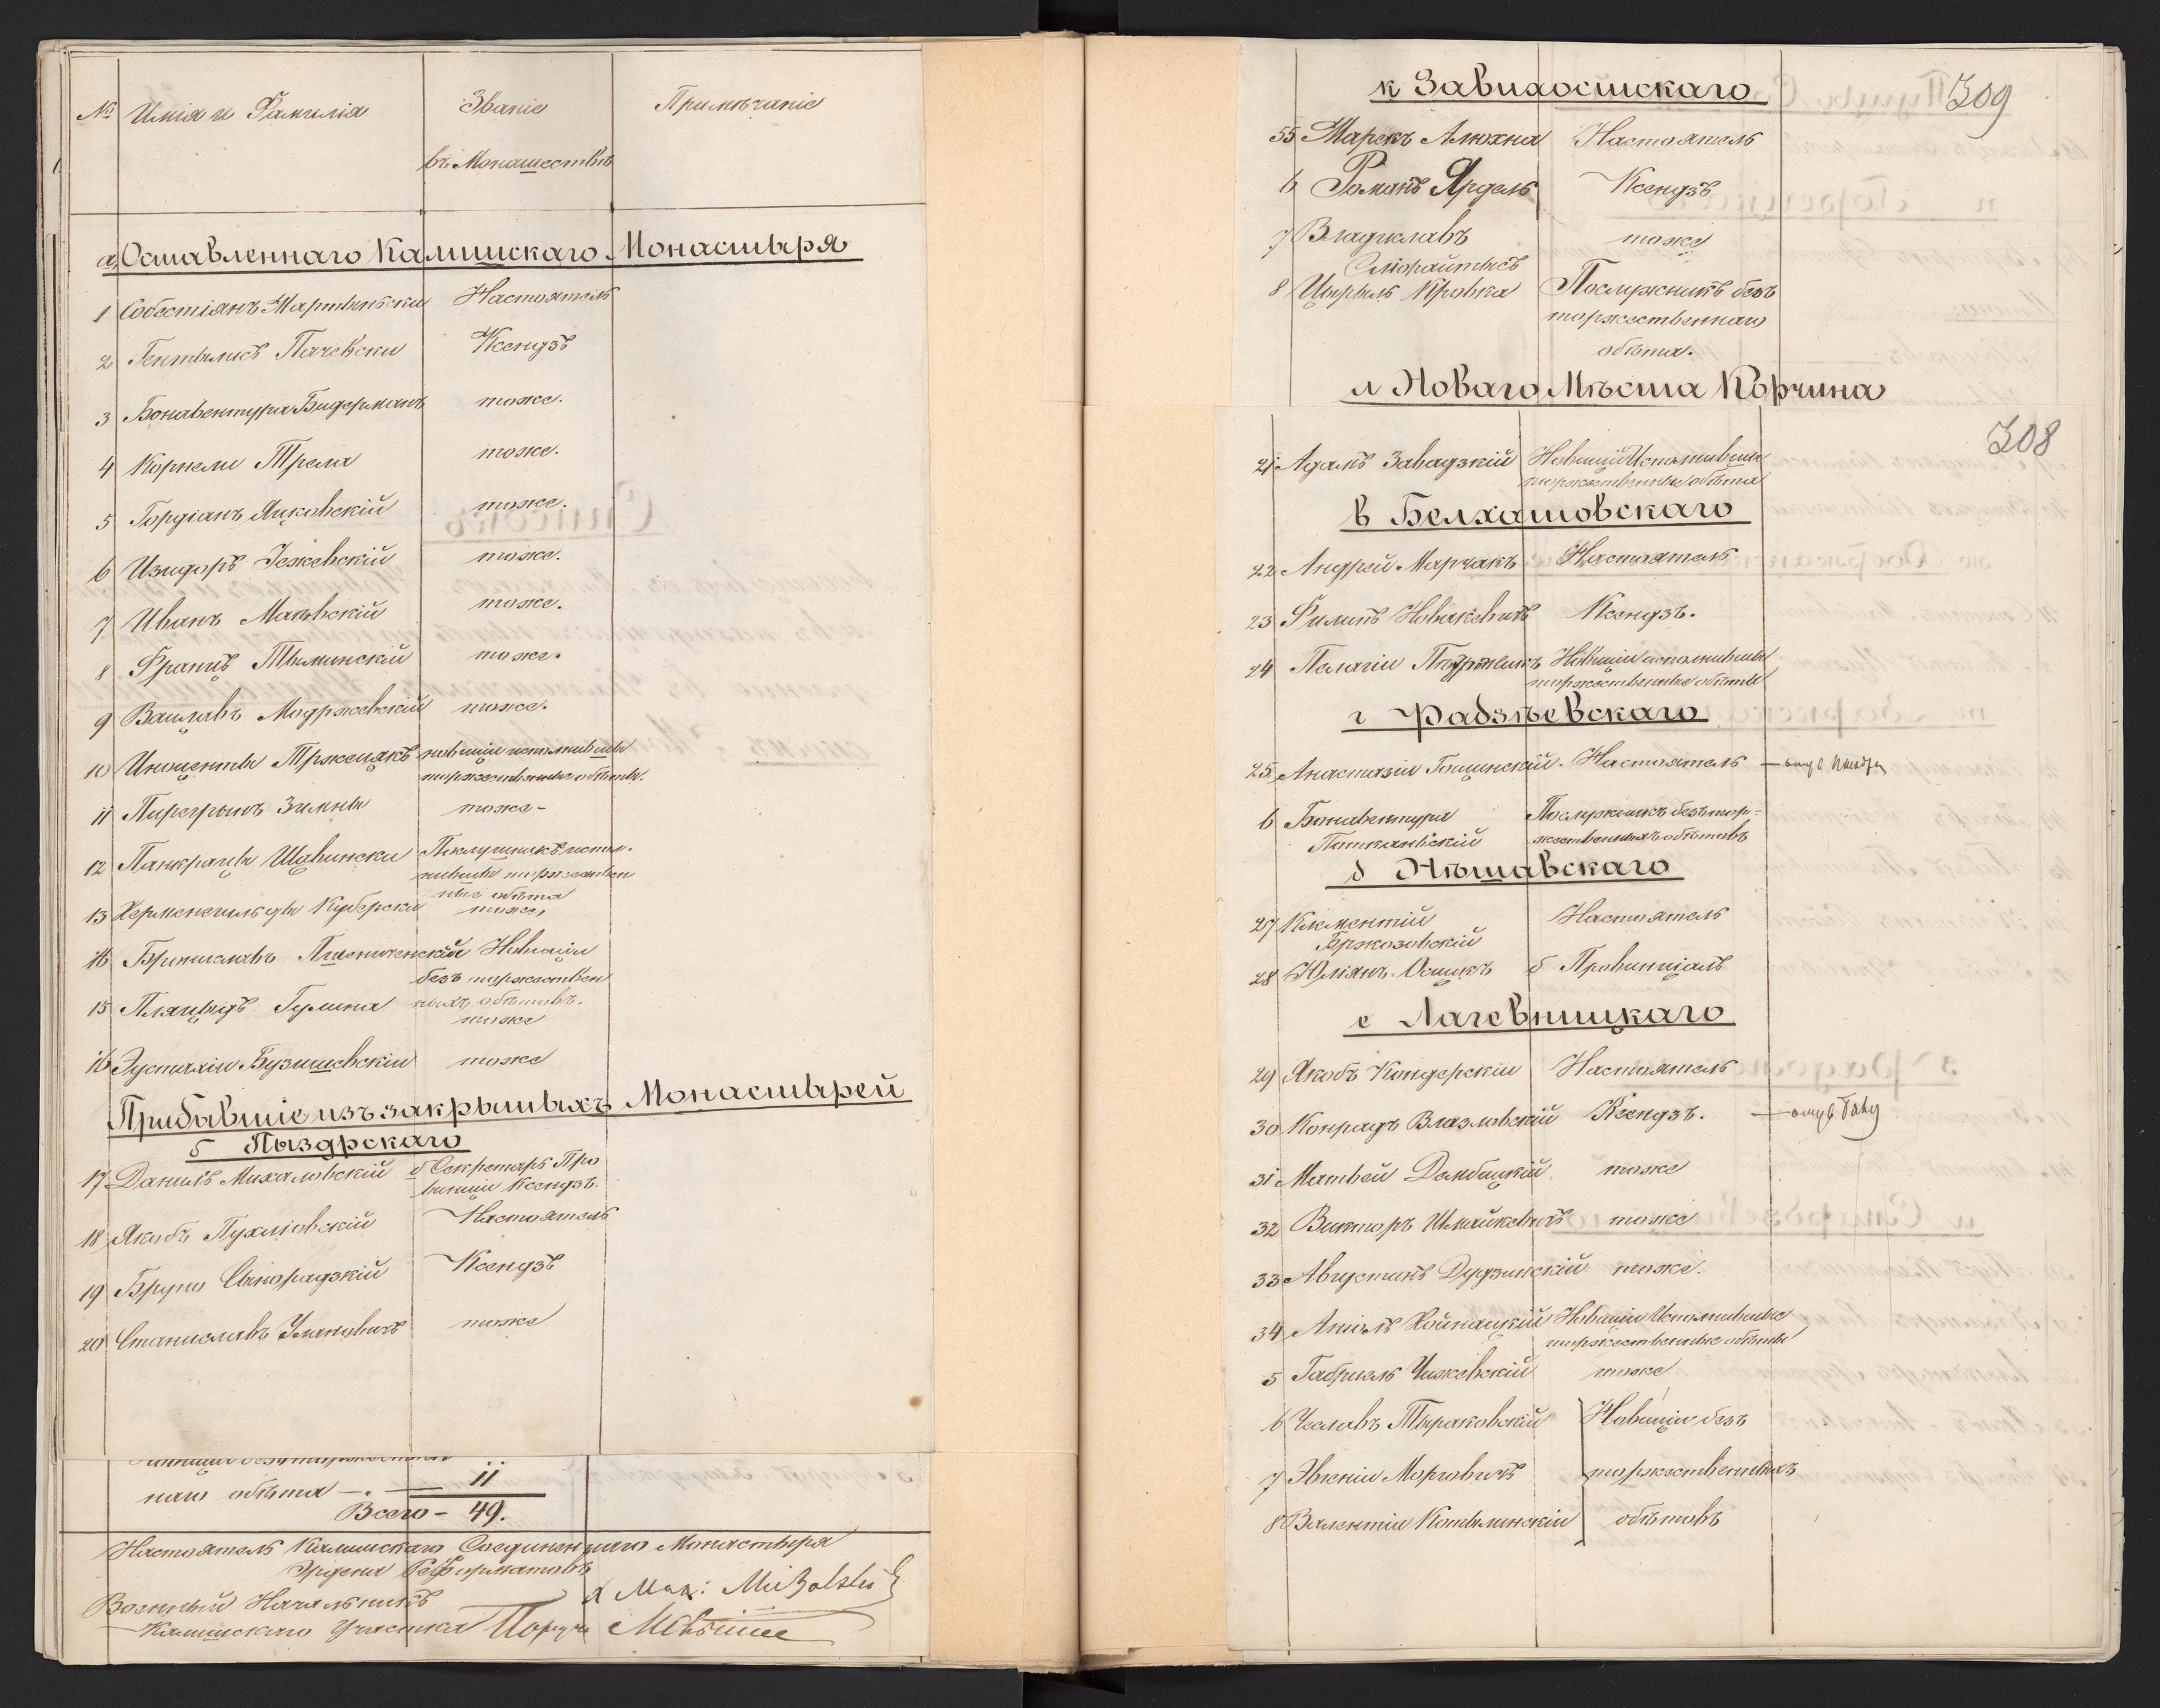 № Имія и Фамилія Званіе Примѣчаніе
въ Монашествѣ
а, Оставленнаго Калишскаго Монастыря
1 Собестіянъ Мартыньски Настоятель
2 Гентылисъ Пачевски Ксендзъ
3 Бонавентура Бидерманъ тоже.
4 Корнели Трела тоже.
5 Гордіанъ Янковскій тоже.
6 Изидоръ Іежевскій тоже.
7 Иванъ тоже.
8 Францъ Тыминскій тоже.
9 Вацлавъ Модржевскій тоже.
10 Иноценты Тржецякъ новиціи исполнившы
торжественные обѣты.
11 Пирегрынъ Зимны тоже -
12 Панкрацы Щавински Послушникъ испол-
нившы торжествен
ные обѣта
13 Херменегильды Куберски тоже,
14 Брониславъ Новиціи
безъ торжествен
ныхъ обѣтовъ.
15 Пляцыдъ Гумина
тоже
16 Эустахіи Бузишевскіи тоже
Прибавшіе изъ закрытыхъ Монастырей
б Пыздрскаго
17 Данилъ Михаловскій б Секретарь Про
винціи Ксендзъ.
18 Якубъ Пухлювскій Настоятель
19 Бруно Сѣпорадзкій Ксендзъ
20 Станиславъ Улановичъ тоже
наго обѣта — 11
Всего - 49.
Настоятель Калишскаго Соединеннаго Монастыря
Ордена Реформатовъ
Военный Начальникъ
Калишскаго Участка Поруч
309
к Завихостскаго
55 Марекъ Алюхна Настоятель
6 Романъ Ярдель Ксендзъ
7 Владиславъ тоже
Сморайтысъ
8 Цырыль Кровка Послужникъ безъ
торжественнаго
обѣта.
л Новаго Мѣста Корчина
308
21 Адамъ Завадзкій Новиціи Исполнившы
торжественные обѣта
в Белхатовскаго
22 Андрей Марчакъ Настоятель
23 Филипъ Новакевичъ Ксендзъ.
24 Пелагіи Новиціи исполнившы
торжественные обѣты
г Радзѣевскаго
25 Анастазіи Гощинскій. Настоятель —
6 Бонавентура Послужникъ безъ тор-
жественныхъ обѣтовъ
д Нѣшавскаго
27 Климентій Настоятель
Бржозовскій
28 Юліянъ Осицкъ б Провинціалъ
е Лагевницкаго
29 Якобъ Кондерскіи Настоятель
30 Конрадъ Влазловскій Ксендзъ. —
31 Матвей Дембицкій тоже
32 Викторъ Шмайкевичъ тоже
33 Августинъ Дудзинскій тоже.
34 Аніолъ Хойнацкій Новиціи Исполнившые
торжественные обѣты
5 Габріель Чижевскій тоже
6 Чеславъ Тыраковскіи Новиціи безъ
7 Эвгеніи Морговичъ торжественныхъ
8 Валентіи Котылинскіи обѣтовъ